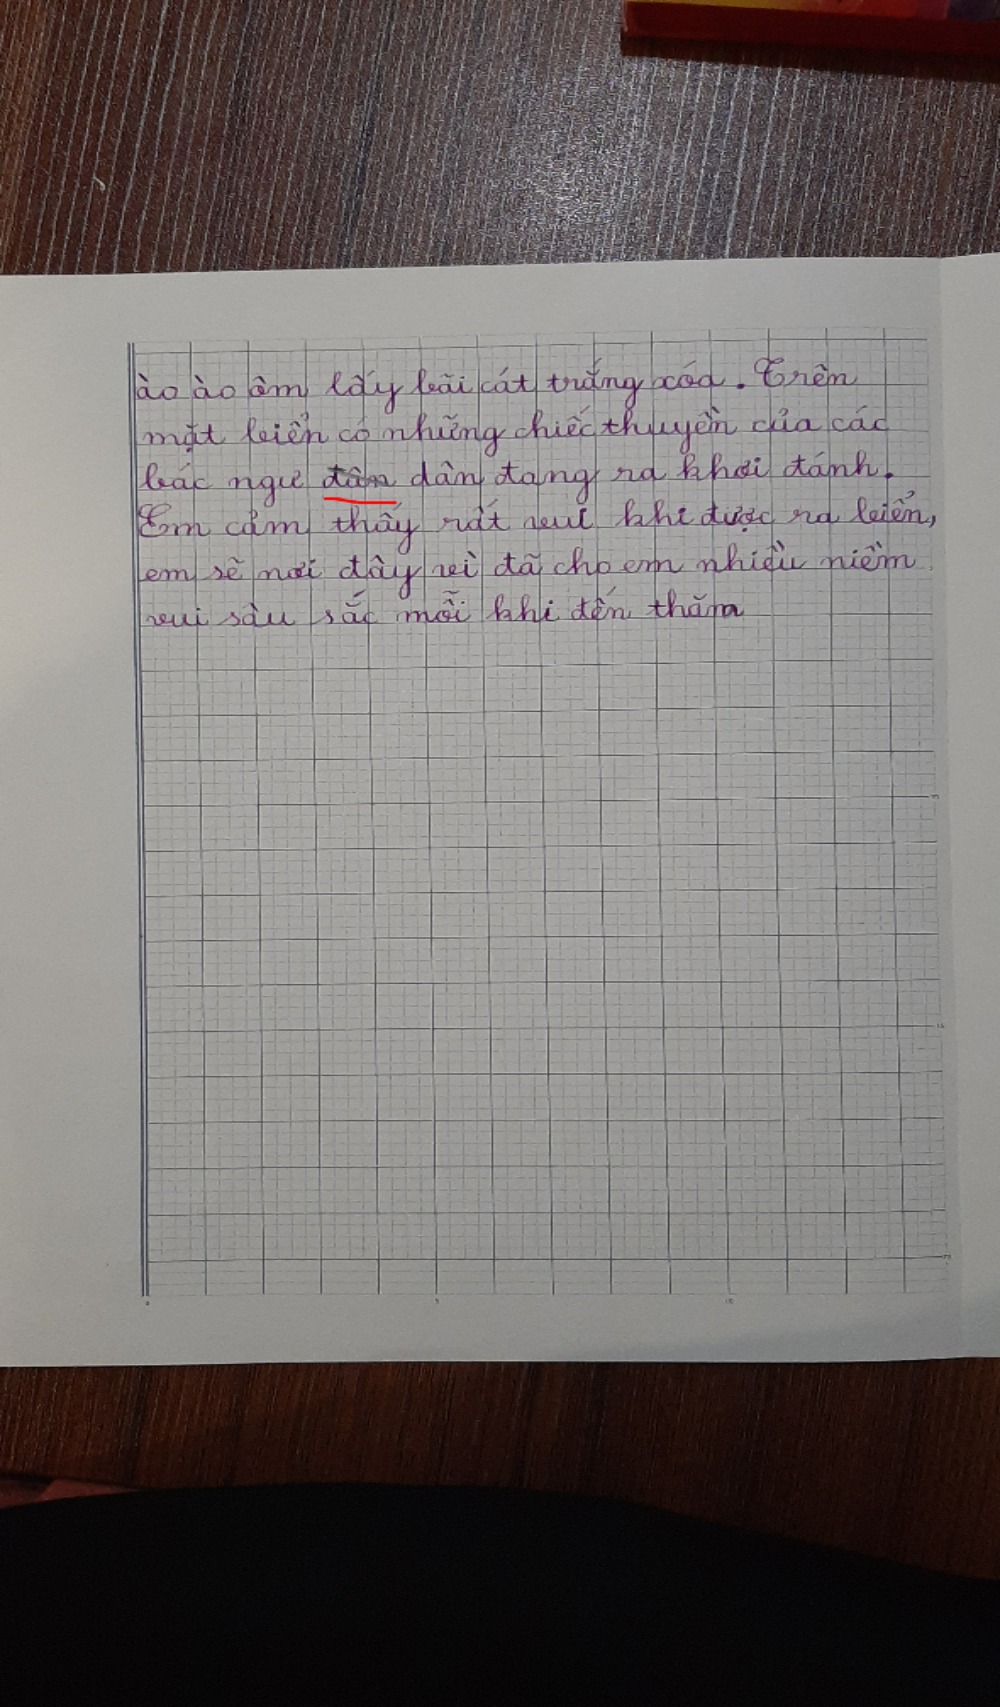 ào ào ôm lấy bãi cát trắng xóa. Trên
mặt biển có những chiếc thuyền của các
bác ngư dân đang ra khơi đánh.
Em cảm thấy rất vui khi được ra biển,
em sẽ nơi đây vì đã cho em nhiều niềm
vui sâu sắc mỗi khi đến thăm